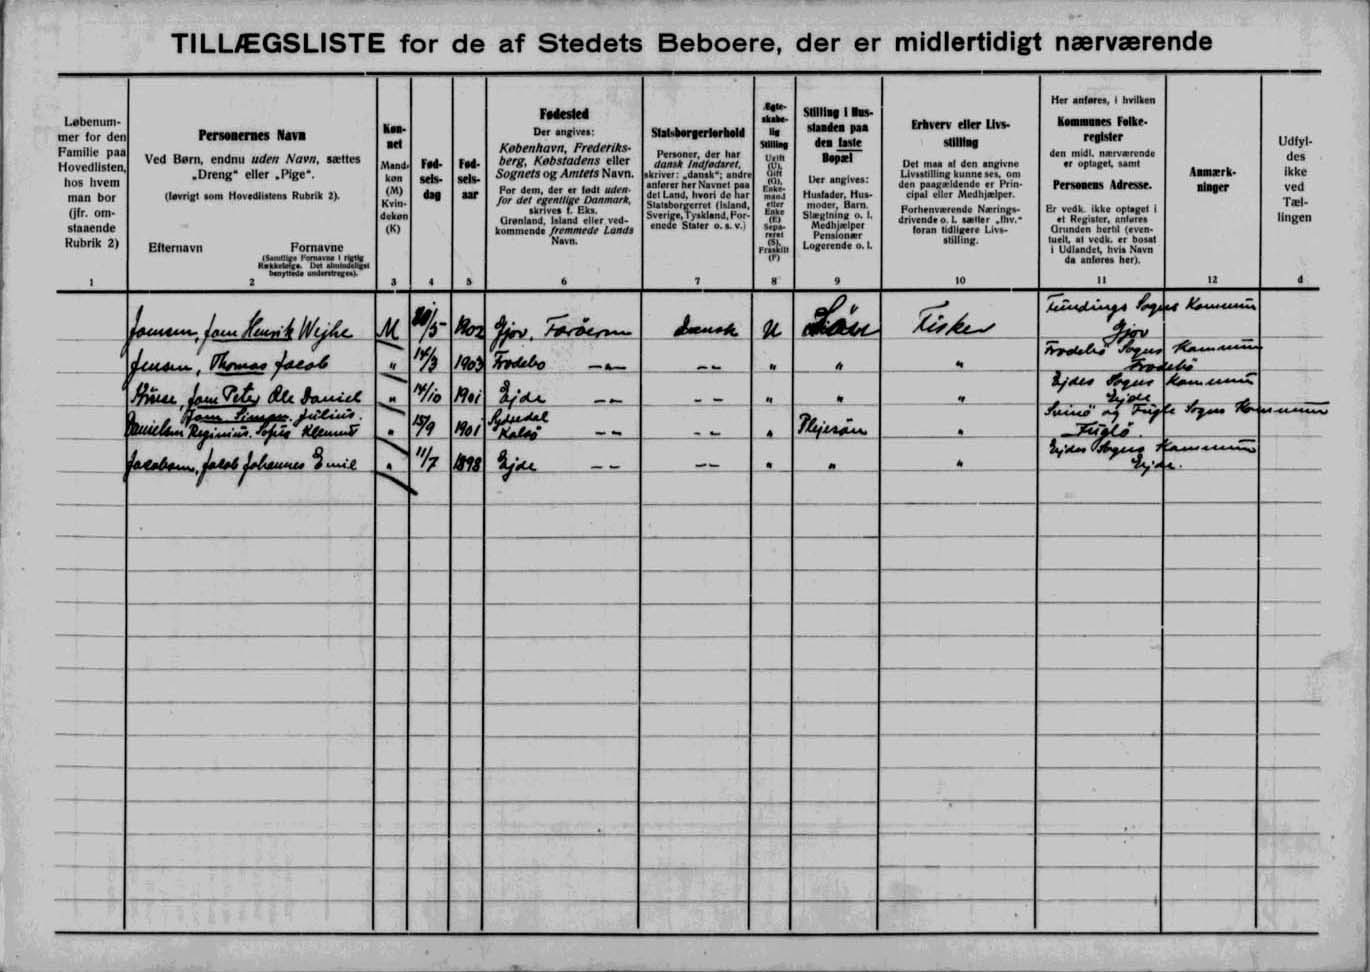 TILLÆGSLISTE for de af Stedets Beboere, der er midlertidigt nærværende
Løbenum-
mer for den
Familie paa
Hovedlisten,
hos hvem
man bor
(jfr. om-
staaende
Rubrik 2)
1
Personernes Navn
Ved Børn, endnu uden Navn, sættes
„Dreng" eller „Pige".
(Iøvrigt som Hovedlistens Rubrik 2).
Efternavn Fornavne
(Samtlige Fornavne i rigtig
Rækkefølge. Det almindeligst
benyttede understreges).
2
Køn-
net
Mand-
køn
(M)
Kvin-
dekøn
(K)
3
Fød-
sels-
dag
4
Fød-
sels-
aar
5
Fødested
Der angives:
København, Frederiks-
berg, Købstadens eller
Sognets og Amtets Navn.
For dem, der er født uden-
for det egentlige Danmark,
skrives f. Eks.
Grønland, Island eller ved-
kommende fremmede Lands
Navn.
6
Statsborgerforhold
Personer, der har
dansk Indfødsret,
skriver: „dansk"; andre
anfører her Navnet paa
det Land, hvori de har
Statsborgerret (Island,
Sverige, Tyskland, For-
enede Stater o. s. v.)
7
Ægte-
skabe-
lig
Stilling
Ugift
(U),
Gift
(G),
Enke-
mand
eller
Enke
(E)
Sepa-
reret
(S),
Fraskilt
(F)
8
Stilling i Hus-
standen paa
den faste
Bopæl
Der angives:
Husfader, Hus-
moder, Barn,
Slægtning o. l.
Medhjælper
Pensionær
Logerende o. l.
9
Erhverv eller Livs-
stilling
Det maa af den angivne
Livsstilling kunne ses, om
den paagældende er Prin-
cipal eller Medhjælper.
Forhenværende Nærings-
drivende o. l. sætter „fhv."
foran tidligere Livs-
stilling.
10
Her anføres, i hvilken
Kommunes Folke-
register
den midl. nærværende
er optaget, samt
Personens Adresse.
Er vedk. ikke optaget i
et Register, anføres
Grunden hertil (even-
tuelt, at vedk. er bosat
i Udlandet, hvis Navn
da anføres her).
11
Anmærk-
ninger
12
Udfyl-
des
ikke
ved
Tæl-
lingen
d
Joensen, Joen Henrik Wejhe M /5- 1902 Gjov, Færöerne Dansk U Fisker Fundings Sogns Kommune
Gjov
Jensen, Thomas Jacob " 14/3 1903 Frodebo -"- -"- " " " Frodebö Sogns Kommune
Frodebö
Joen Peter Ole Daniel " 14/10 1901 Ejde -"- -"- " " " Ejdes Sogns Kommune
Ejde
Joen Simon Julius.
Danielsen Reginius. Sofus Klemmet " 15/9 1901 Sydredal
Kalsö -"- -"- " Plejesön " Svinö og Fuglö Sogns Kommune
Fuglö.
Jacobsen, Jacob Johannes Emil " 11/7 1898 Ejde -"- -"- " " " Ejdes Sogns Kommune
Ejde.